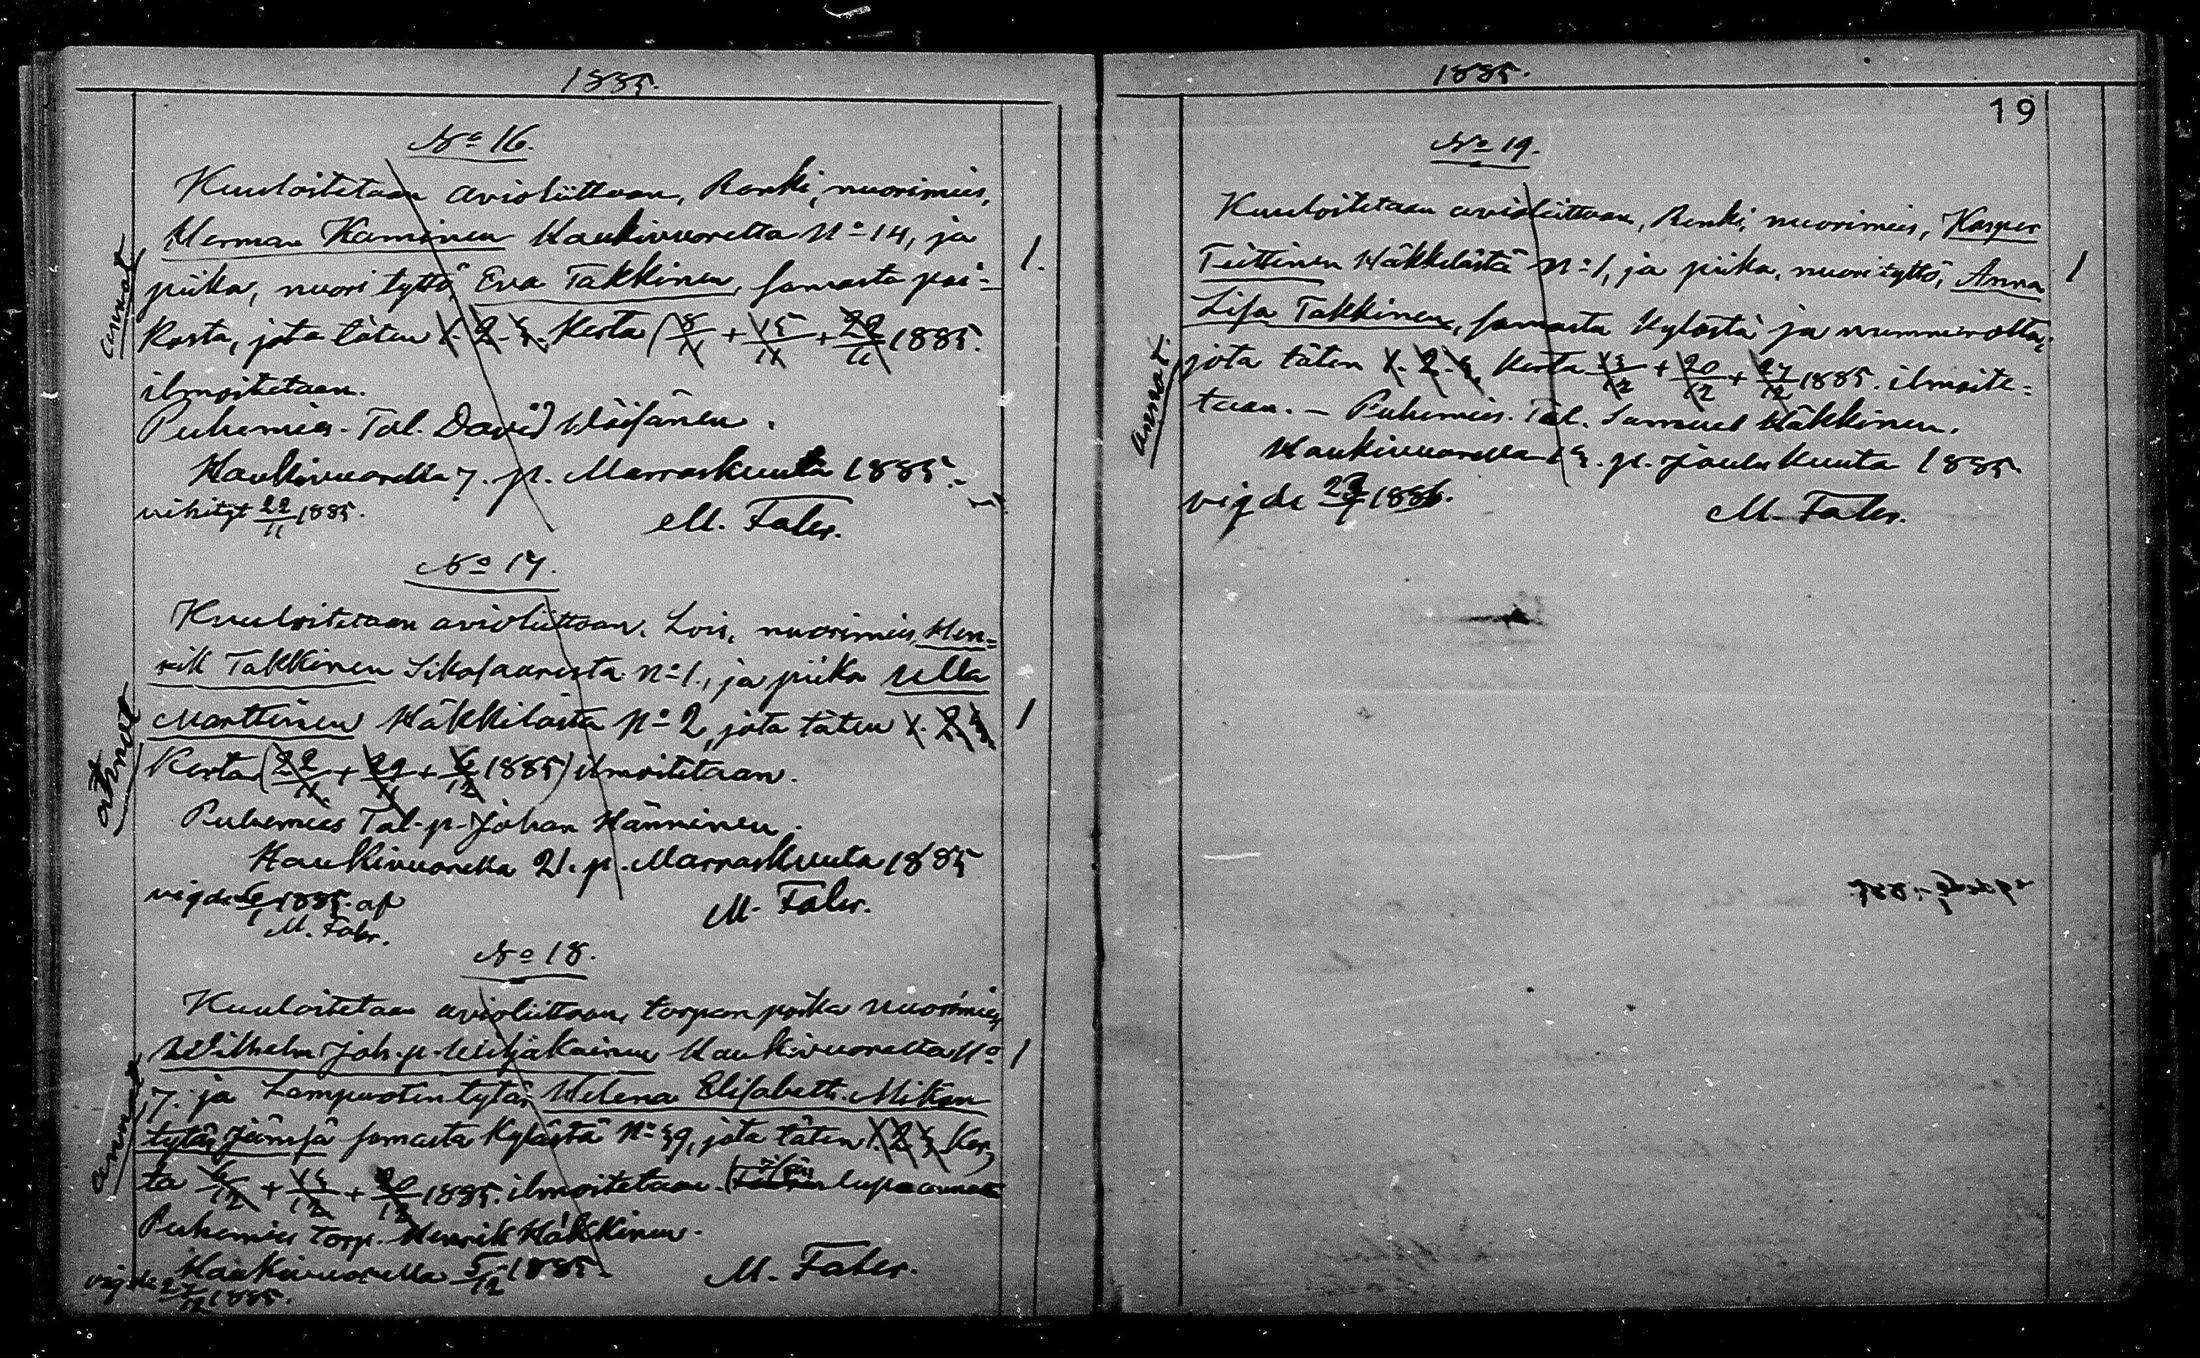 1885.
No 16.
Kuuloitetaan avioliittoon, Renki, nuorimies,
Herman Kaminen Haukivuorelta No 14, ja
piika, nuori tyttö, Eva Takkinen, samasta pai-
kasta, jota täten 1. 2. 3. kerta (8/11 + 15/11 + 22/11 1885.
ilmoitetaan.
Puhemies Tal. David Wäisänen.
Haukivuorella 7. p. Marraskuuta 1885.
vihityt 22/11 1885.
M. Faler.
No 17.
Kuuloitetaan avioliittoon, Lois, nuorimies, Hen-
rik Takkinen Sikosaaresta No 1., ja piika Ulla
Marttinen Häkkilästä No 2, jota täten 1. 2. 3.
Kerta (22/11 + 29/11 + 6/12 1885) ilmoitetaan.
Puhemies Tal. p. Johan Hänninen.
Haukivuorella 21. p. Marraskuuta 1885
M. Faler.
vigde 6/1 1885. af
M. Faler.
No 18.
Kuuloitetaan avioliittoon, torpan poika nuorimies
Wilhelm Joh. p. Wiljakainen Haukivuorelta No
7. ja Lampuotin tytär Helena Elisabeth Mikon
tytär Jäntjä samasta kylästä No 39, jota täten 1. 2. 3. Ker-
ta 6/12 + 13/12 + 20/12 1885. ilmoitetaan. lupa annett
Puhemies torp. Henrik Häkkinen.
Haukivuorella 5/12 1885.
M. Faler.
vigde 27/12 1885.
annot
annot
annot
1.
1
1
1885.
19
No 19.
Kuuloitetaan avioliittoon, Renki, nuorimies, Kasper
Teittinen Häkkilästä No 1, ja piika, nuori tyttö, Anna
Lisa Takkinen, samasta kylästä ja nummerolta,
jota täten 1. 2. 3. kerta 13/12 + 20/12 + 27/12 1885. ilmoite-
taan. — Puhemies. Tal. Samuel Häkkinen.
Haukivuorella 13. p. Joulukuuta 1885.
vigde 23/1 1886.
M. Faler.
annot.
1